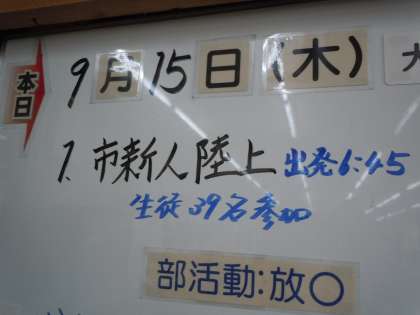 本日
9月15日(木)
1. 市新人陸上 出発6:45
生徒39名参加
部活動:放○